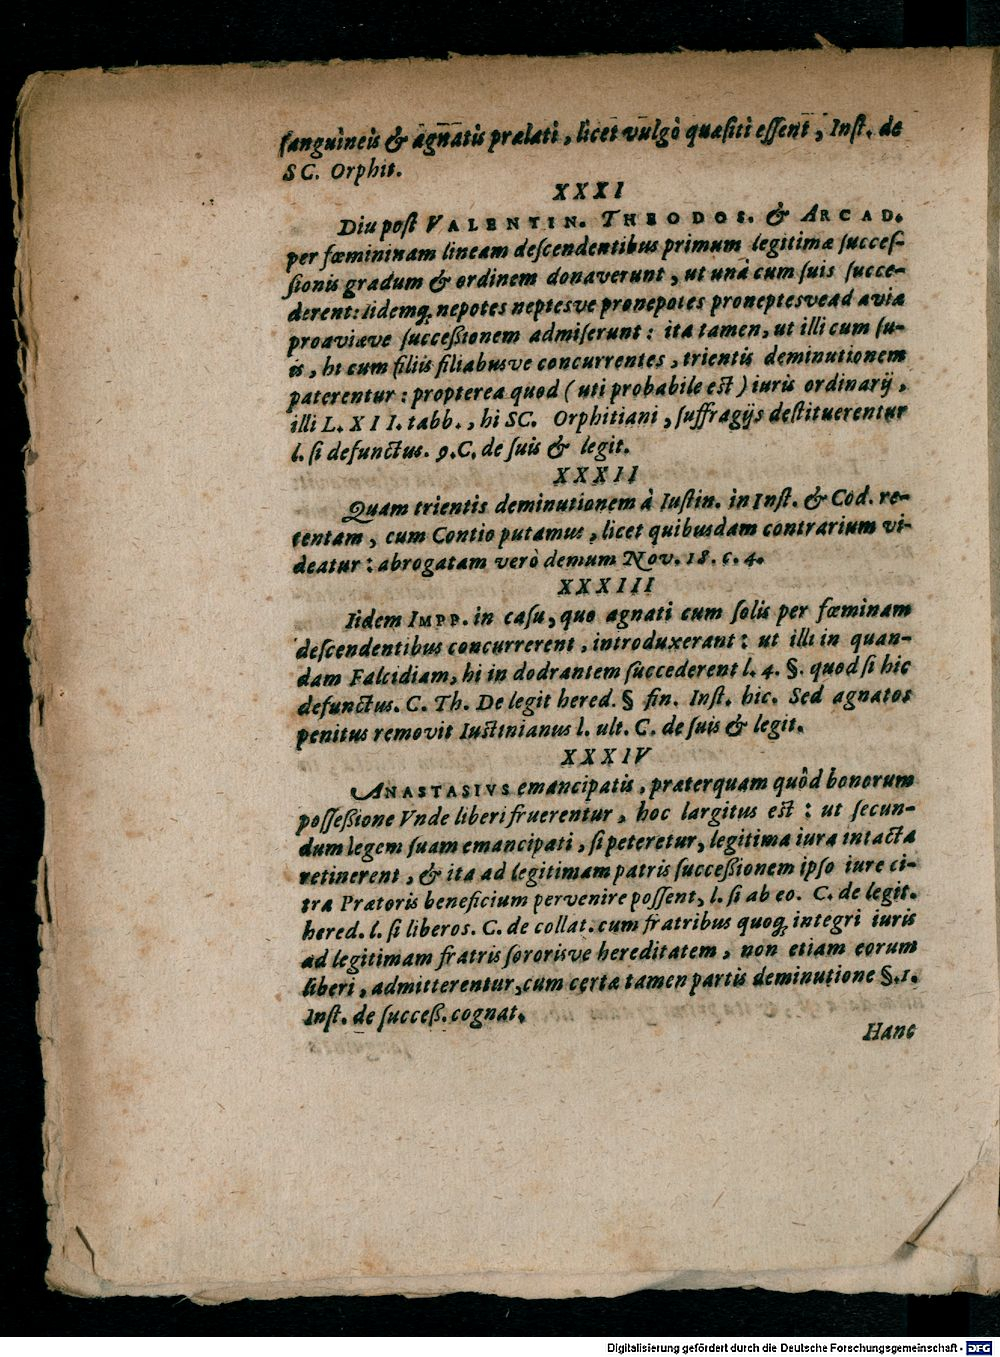 sanguineis & agnatis prælati, licet vulgò quæsiti essent, Inst. de
SC. Orphit.
XXXI
Diu post VALENTIN. THEODOS. & ARCAD.
per fœmininam lineam descendentibus primum legitimæ succes-
sionis gradum & ordinem donaverunt, ut unà cum suis succe-
derent: iidemq; nepotes neptesve pronepotes proneptesvead avia
proaviæve successionem admiserunt: ita tamen, ut illi cum su-
is, hi cum filiis filiabusve concurrentes, trientis deminutionem
paterentur: propterea quod (uti probabile est) iuris ordinarij,
illi L. XII. tabb., hi SC. Orphitiani, suffragijs destituerentur
l. si defunctus. 9. C. de suis & legit.
XXXII
Quam trientis deminutionem à Iustin. in Inst. & Cod. re-
tentam, cum Contio putamus, licet quibusdam contrarium vi-
deatur: abrogatam verò demum Nov. 18. c. 4.
XXXIII
Iidem IMPP. in casu, quo agnati cum solis per fœminam
descendentibus concurrerent, introduxerant: ut illi in quan-
dam Falcidiam, hi in dodrantem succederent l. 4. §. quod si hic
defunctus. C. Th. De legit hered. § fin. Inst. hic. Sed agnatos
penitus removit Iustinianus l. ult. C. de suis & legit.
XXXIV
ANASTASIVS emancipatis, præterquam quòd bonorum
possessione Vnde liberi fruerentur, hoc largitus est: ut secun-
dum legem suam emancipati, si peteretur, legitima iura intacta
retinerent, & ita ad legitimam patris successionem ipso iure ci-
tra Prætoris beneficium pervenire possent, l. si ab eo. C. de legit.
hered. l. si liberos. C. de collat. cum fratribus quoq; integri iuris
ad legitimam fratris sororisve hereditatem, non etiam eorum
liberi, admitterentur, cum certæ tamen partis deminutione §. 1.
Inst. de success. cognat.
Hanc
Digitalisierung gefördert durch die Deutsche Forschungsgemeinschaft - DFG